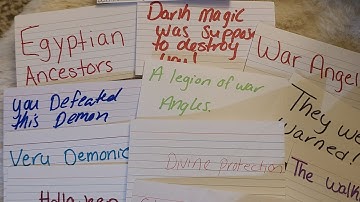 Egyptian
Ancestors
Dark magic
was suppose
to destroy
you!
War Angel
you Defeated
this Demon
A legion of war
Angles.
They we
warned!
Very Demonic
Divine protection!
The walk